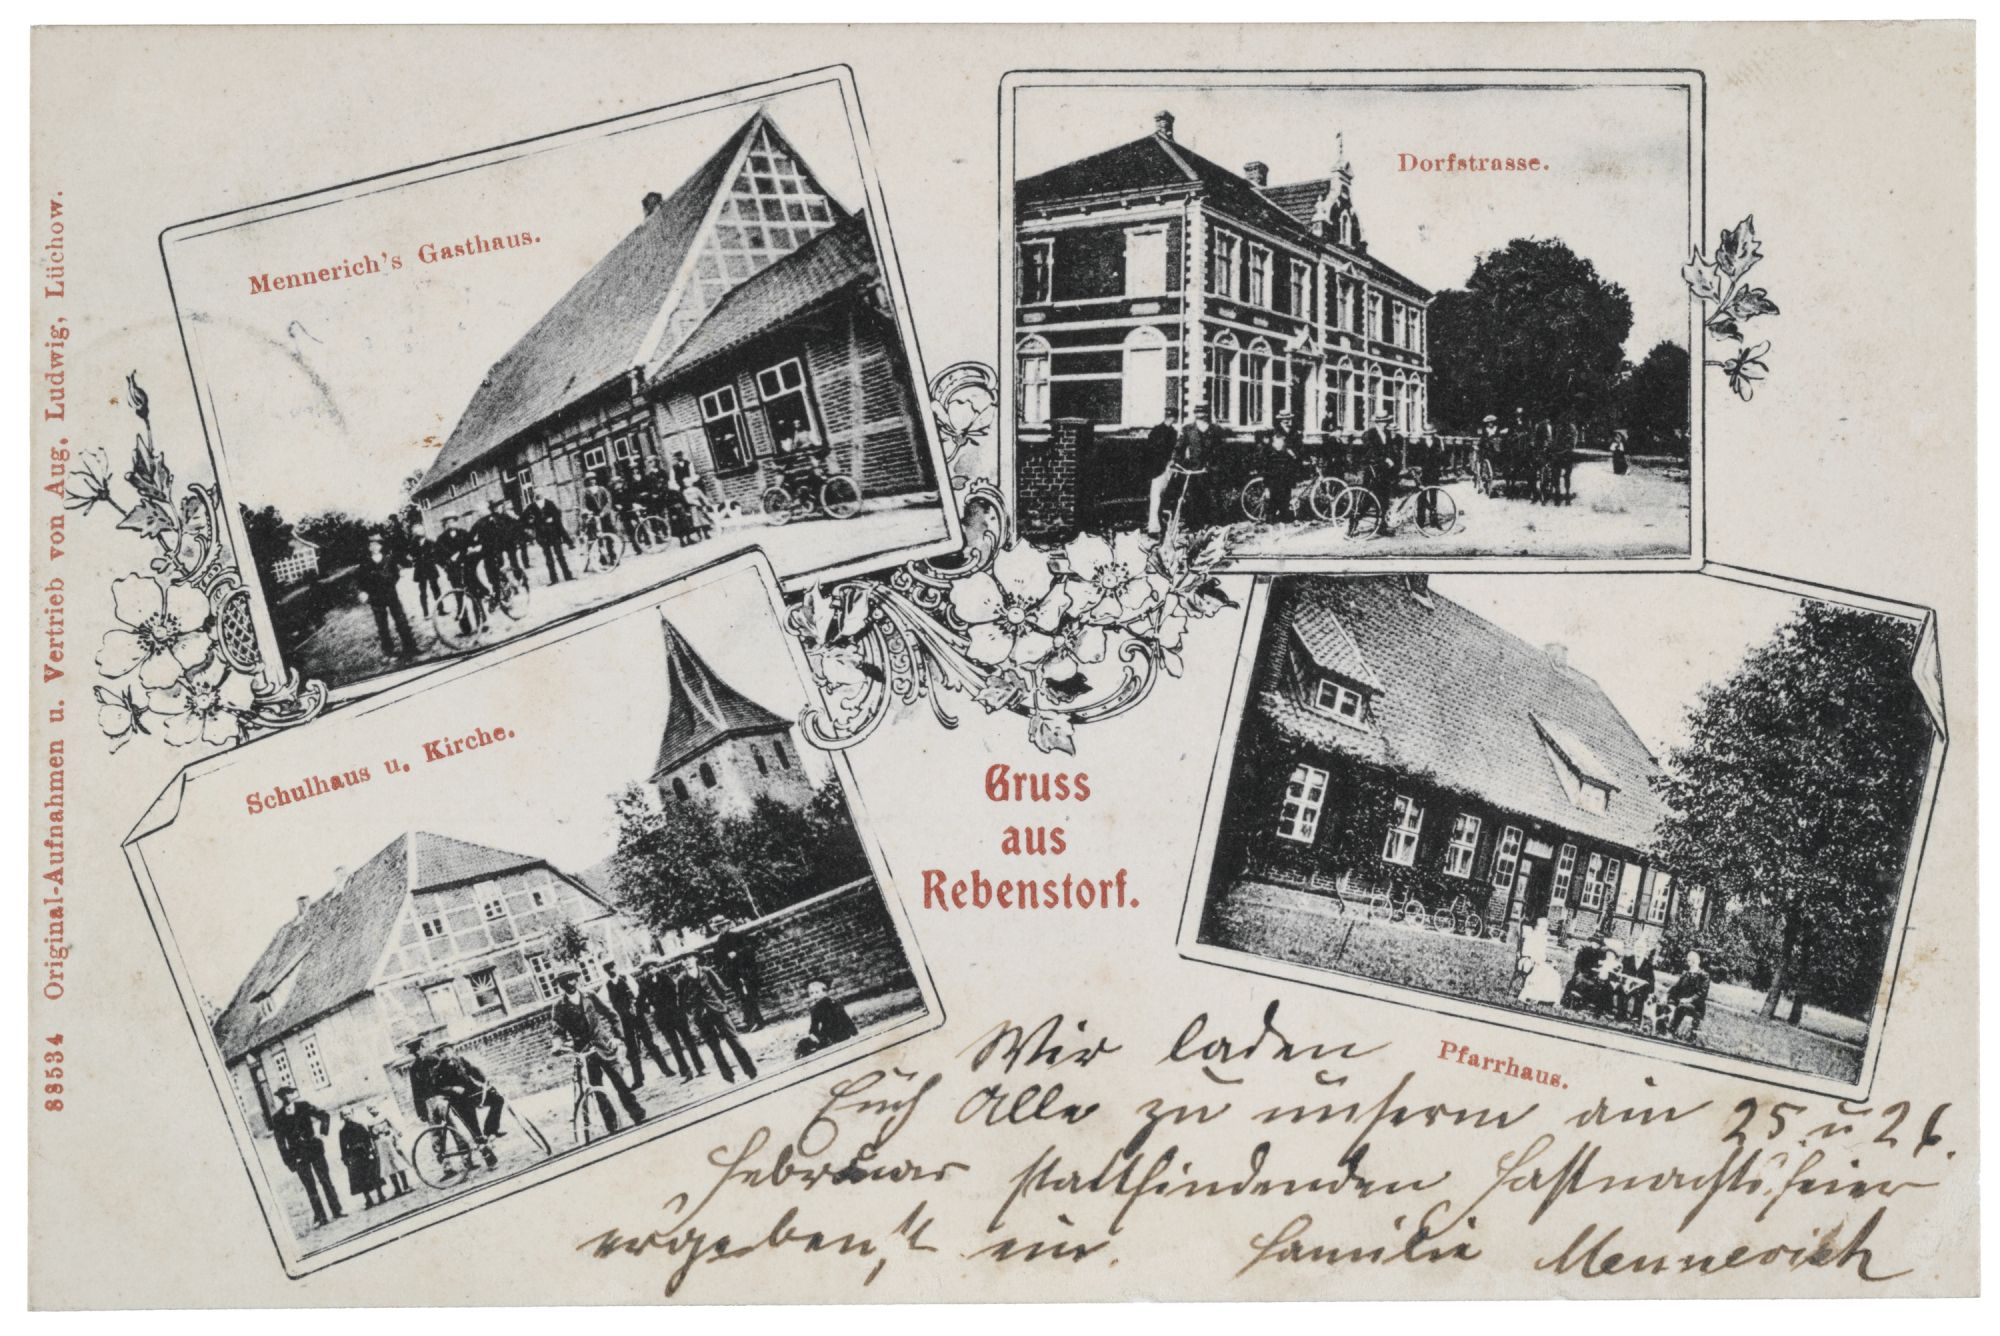 Mennerich's Gasthaus.
Dorfstrasse.
Schulhaus u. Kirche.
Gruss
aus
Rebenstorf.
Pfarrhaus.
88534 Original-Aufnahmen u. Vertrieb von Aug. Ludwig, Lüchow.
Wir laden
Euch Alle zu unserm am 25 u 26.
Februar stattfindenden Fastnachtsfeier
ergebenst ein. Familie Mennerich